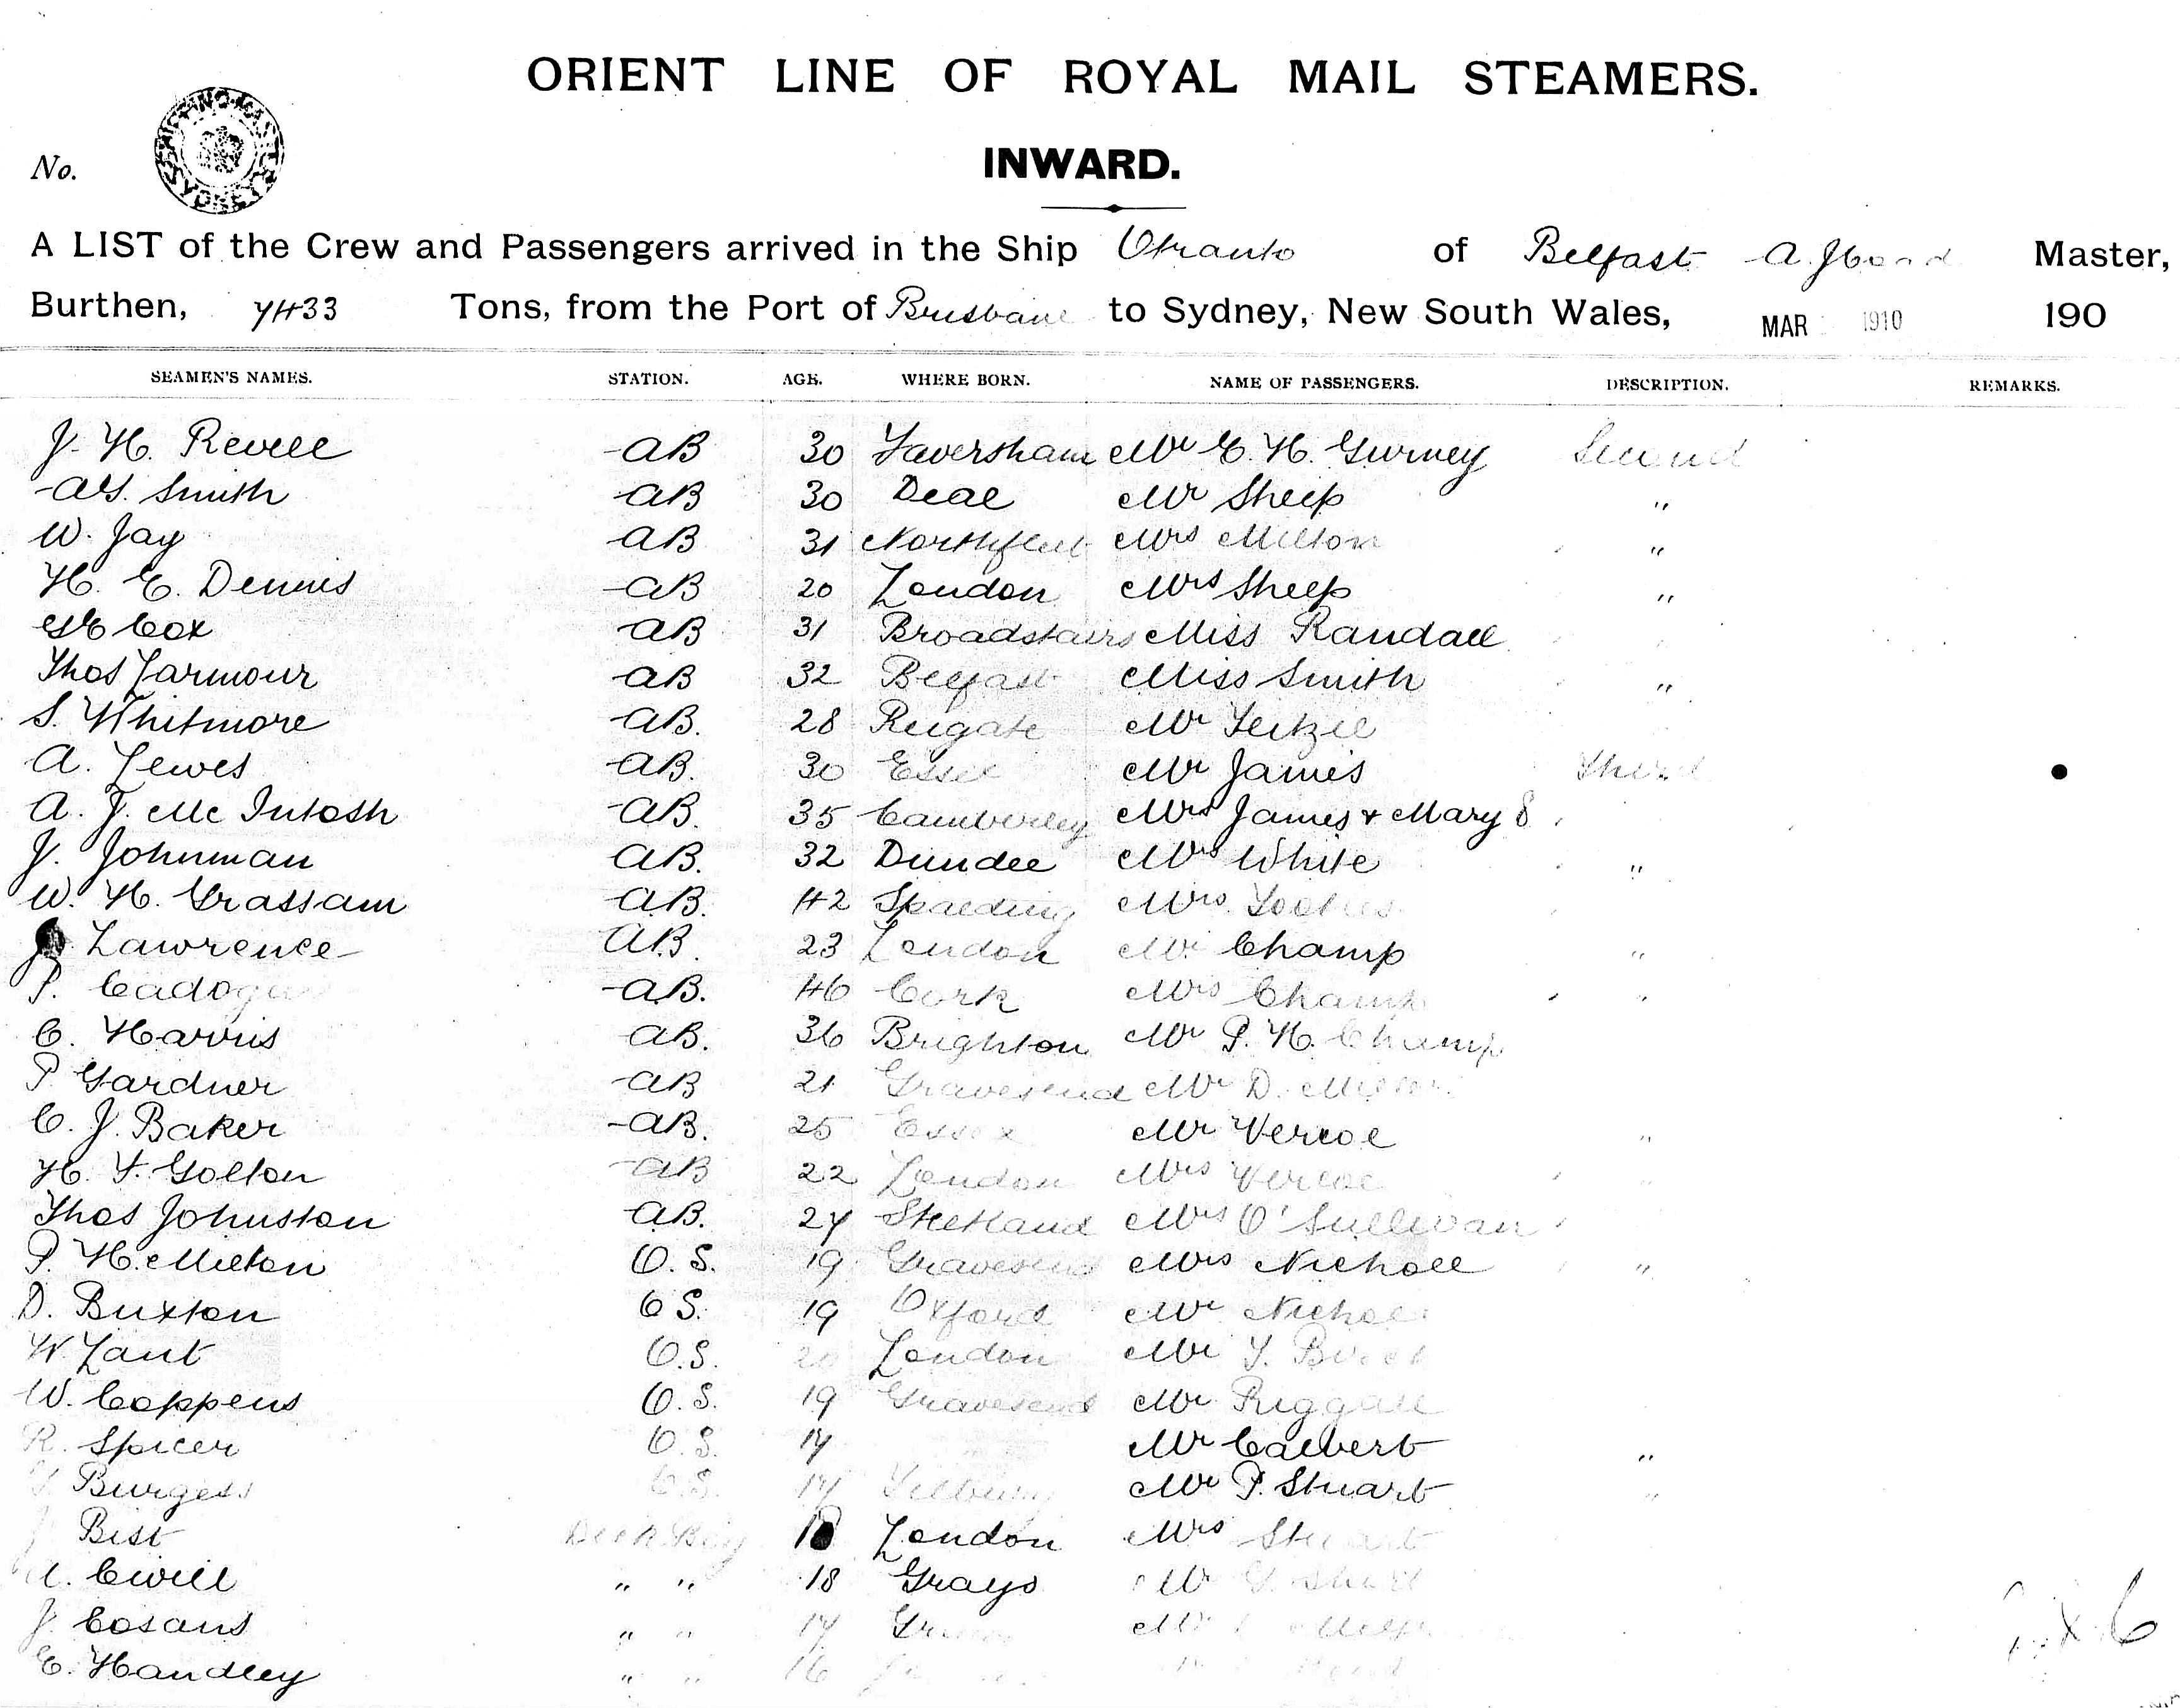 ORIENT LINE OF ROYAL MAIL STEAMERS.
INWARD.
No.
A LIST of the Crew and Passengers arrived in the Ship Otranto of Belfast A. J. Master,
Burthen, 7433 Tons, from the Port of Brisbane to Sydney, New South Wales, MAR 1910 190
SEAMEN'S NAMES. STATION. AGE. WHERE BORN. NAME OF PASSENGERS. DESCRIPTION. REMARKS.
J. H. Revell AB 30 Faversham Mr E. H. Gurney Second
Smith AB 30 Deal Mr Sheep "
W. Jay AB 31 Northfleet Mrs Milton "
H. E. Dennis AB 20 London Mrs Sheep "
Cox AB 31 Broadstairs Miss Randall
Thos Farmour AB 32 Belfast Miss Smith "
S. Whitmore AB. 28 Reigate Mr
A. Lewes AB. 30 Essex Mr James Third
A. F. Mc Intosh AB. 35 Camberley Mrs James & Mary
J. Johnman AB. 32 Dundee Mrs White "
W. H. Grassam A.B. 42 Spalding Mrs
J. Lawrence A.B. 23 London Mr Champ "
P. Cadogan A.B. 46 Cork Mrs Champ "
C. Harris AB. 36 Brighton Mr P. H. Champ
P Gardner AB 21 Gravesend Mr D.
C. J. Baker AB. 25 Essex Mr Vercoe "
H. F. Golton AB 22 London Mrs Vercoe "
Thos Johnston A.B. 27 Shetland Mrs O'Sullivan
P. H. Milton O.S. 19 Gravesend Mrs Nicholl "
D. Buxton O S. 19 Oxford Mr Nicholl
W. Lant O.S. 20 London Mr
W. Coppens O.S. 19 Gravesend Mr Riggall
R. Spicer O.S. 17 Mr Calvert "
Burgess O.S. 17 Tilbury Mr P. Stuart "
Bist Deck Boy London Mrs Stuart
Civill " " 18 Grays Mr
J. Cosans " " 17
E. Handley " " 16